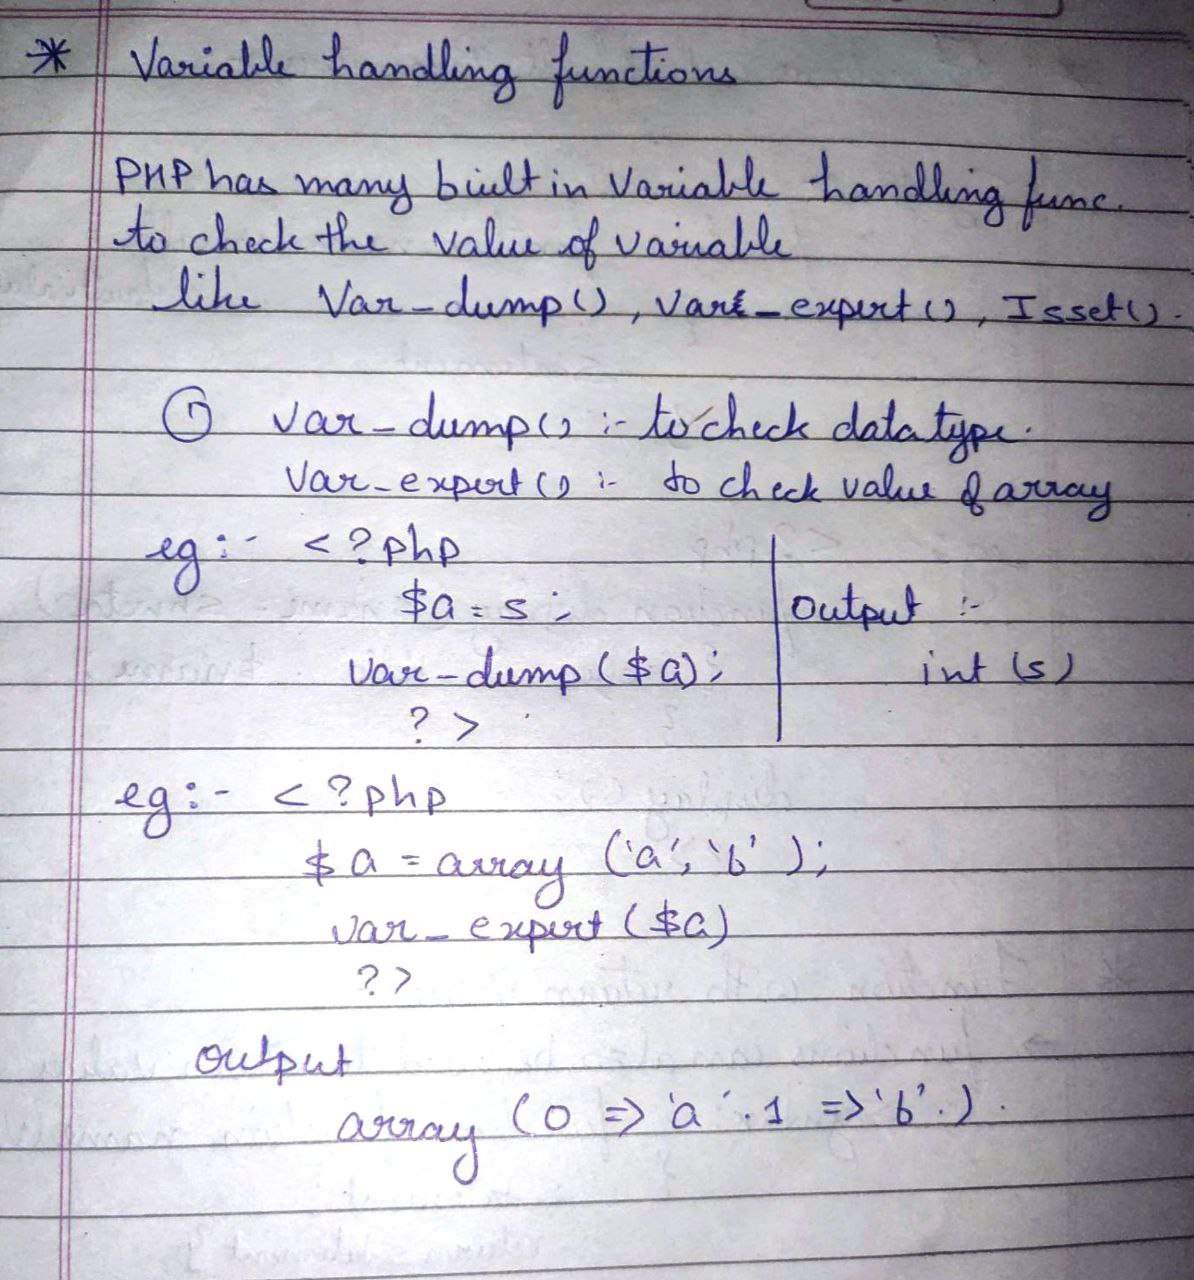 * Variable handling functions
PHP has many built in Variable handling func.
to check the value of variable
like Var-dump(), Var_expert(), Isset().
① var-dump() :- to check data type.
Var-expert() :- to check value of array
eg:- <?php
$a = 5;
var-dump ($a);
?>
Output :-
int (5)
eg:- <?php
$a = array ('a', 'b');
var_expert ($a)
?>
output
array (0 => 'a'. 1 => 'b'.).